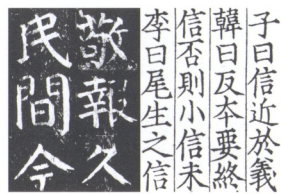 子曰信近於義
韓曰反夲要終
信否則小信未
李曰尾生之信
敬報久
民間今